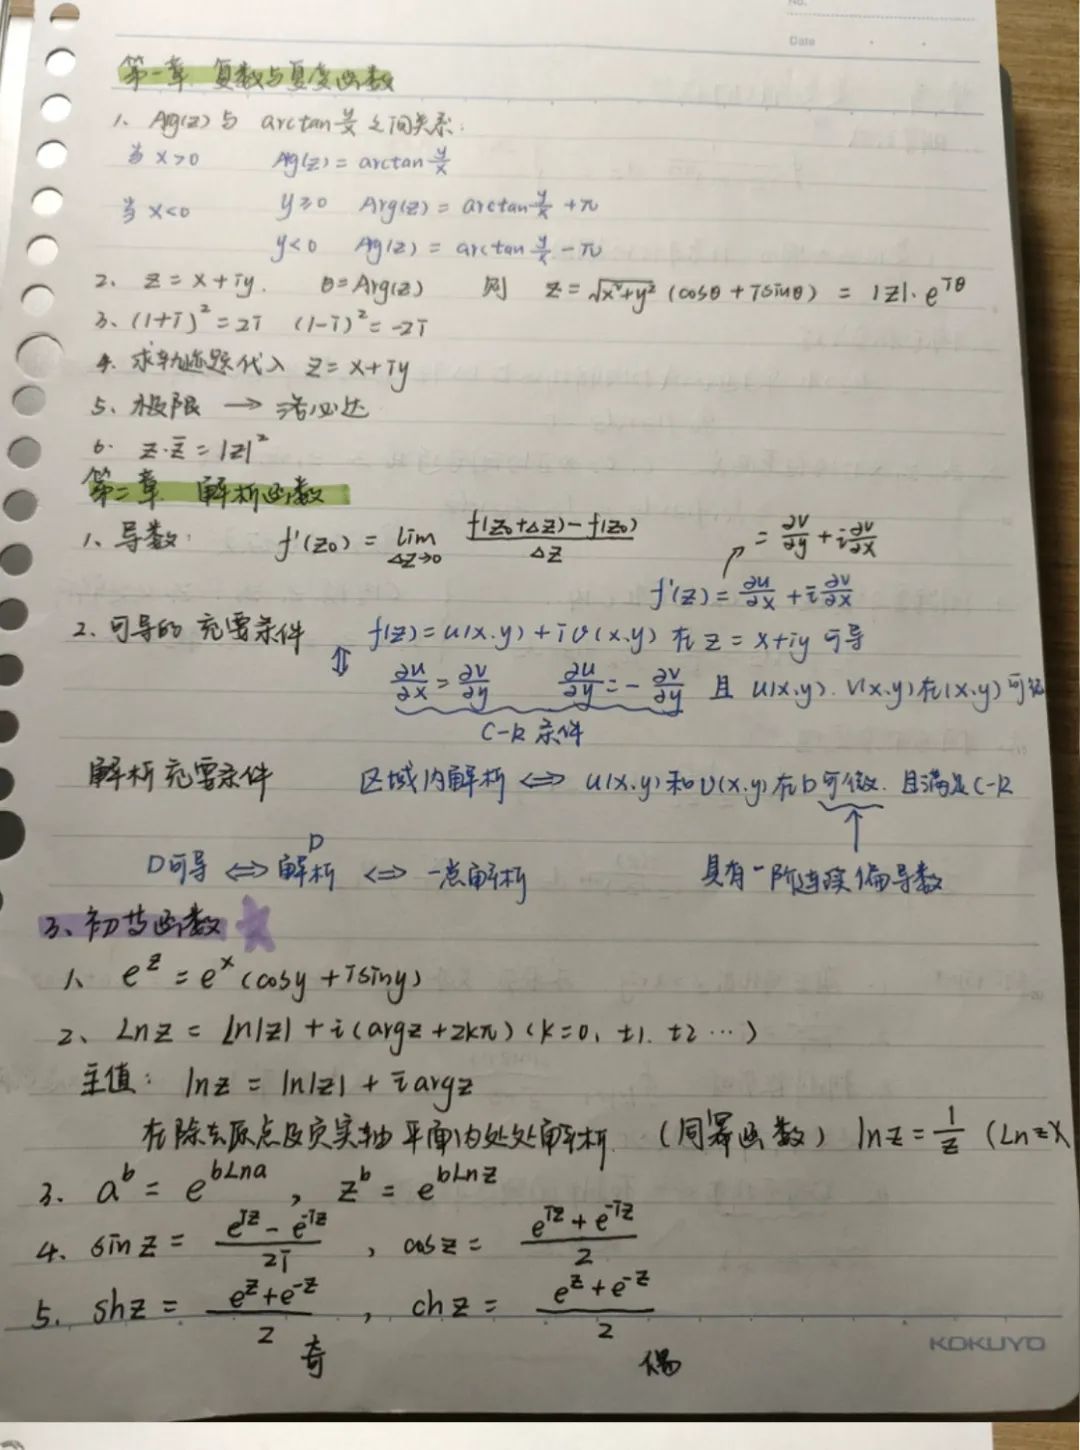 No.
Date
第一章 复数与复变函数
1、Arg(z)与 arctan y/x 之间关系:
当 x>0 Arg(z) = arctan y/x
当 x<0 y≥0 Arg(z) = arctan y/x +π
y<0 Arg(z) = arctan y/x -π
2. z = x+iy. θ=Arg(z) 则 z=√(x²+y²) (cosθ+isinθ) = |z|·e^(iθ)
3、(1+i)² = 2i (1-i)² = -2i
4. 求轨迹题代入 z = x+iy
5、极限 → 洛必达
6. z·z̄ = |z|²
第二章 解析函数
1、导数: f'(z₀) = lim Δz→0 (f(z₀+Δz)-f(z₀))/Δz
= ∂v/∂y + i∂v/∂x
f'(z) = ∂u/∂x + i∂v/∂x
2、可导的充要条件 f(z)=u(x.y)+iv(x.y) 在 z = x+iy 可导
⇕ ∂u/∂x = ∂v/∂y ∂u/∂y = -∂v/∂y 且 u(x.y). v(x.y)在(x.y)可
C-R 条件
解析充要条件 区域内解析 ⇔ u(x.y)和v(x.y)在D可微. 且满足C-R
D可导 ⇔ D解析 ⇔ 一点解析 具有一阶连续偏导数
3、初等函数
1、e^z = e^x (cosy + isiny)
2、Lnz = ln|z| + i(argz+2kπ) (k=0, ±1. ±2 …)
主值: lnz = ln|z| + i argz
在除去原点及负实轴平面内处处解析. (同幂函数) lnz = 1/z (Lnz
3. a^b = e^(bLna) , z^b = e^(bLnz)
4. sinz = (e^(iz) - e^(-iz))/2i , cosz = (e^(iz) + e^(-iz))/2
5. shz = (e^z+e^(-z))/2 , chz = (e^z+e^(-z))/2
奇 偶
KOKUYO